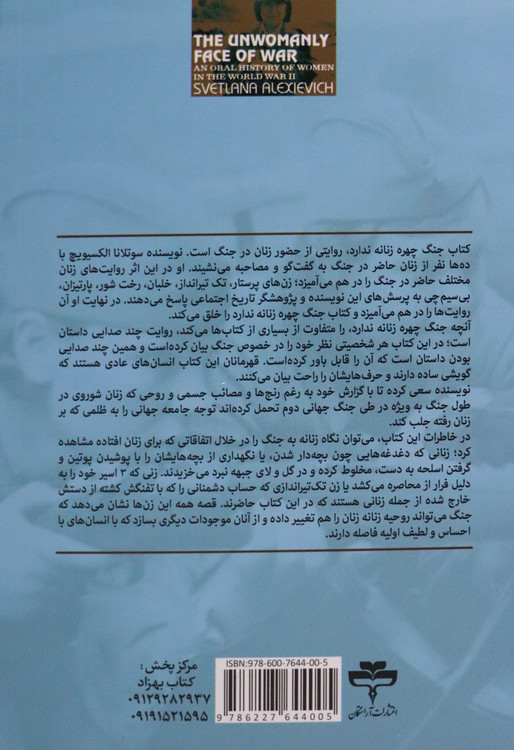 THE UNWOMANLY
FACE OF WAR
AN ORAL HISTORY OF WOMEN
IN THE WORLD WAR II
SVETLANA ALEXIEVICH
کتاب جنگ چهره زنانه ندارد، روایتی از حضور زنان در جنگ است. نویسنده سوتلانا الکسیویچ با
ده‌ها نفر از زنان حاضر در جنگ به گفت‌وگو و مصاحبه می‌نشیند. او در این اثر روایت‌های زنان
مختلف حاضر در جنگ را در هم می‌آمیزد؛ زن‌های پرستار، تک تیرانداز، خلبان، رخت شور، پارتیزان،
بی‌سیم‌چی به پرسش‌های این نویسنده و پژوهشگر تاریخ اجتماعی پاسخ می‌دهند. در نهایت او آن
روایت‌ها را در هم می‌آمیزد و کتاب جنگ چهره زنانه ندارد را خلق می‌کند.
آنچه جنگ چهره زنانه ندارد، را متفاوت از بسیاری از کتاب‌ها می‌کند، روایت چند صدایی داستان
است؛ در این کتاب هر شخصیتی نظر خود را در خصوص جنگ بیان کرده‌است و همین چند صدایی
بودن داستان است که آن را قابل باور کرده‌است. قهرمانان این کتاب انسان‌های عادی هستند که
گویشی ساده دارند و حرف‌هایشان را راحت بیان می‌کنند.
نویسنده سعی کرده تا با گزارش خود به رغم رنج‌ها و مصائب جسمی و روحی که زنان شوروی در
طول جنگ به ویژه در طی جنگ جهانی دوم تحمل کرده‌اند توجه جامعه جهانی را به ظلمی که بر
زنان رفته جلب کند.
در خاطرات این کتاب، می‌توان نگاه زنانه به جنگ را در خلال اتفاقاتی که برای زنان افتاده مشاهده
کرد؛ زنانی که دغدغه‌هایی چون بچه‌دار شدن، یا نگهداری از بچه‌هایشان را با پوشیدن پوتین و
گرفتن اسلحه به دست، مخلوط کرده و در گل و لای جبهه نبرد می‌خزیدند. زنی که ۳ اسیر خود را به
دلیل فرار از محاصره می‌کشد یا زن تک‌تیراندازی که حساب دشمنانی را که با تفنگش کشته از دستش
خارج شده از جمله زنانی هستند که در این کتاب حاضرند. قصه همه این زن‌ها نشان می‌دهد که
جنگ می‌تواند روحیه زنانه زنان را هم تغییر داده و از آنان موجودات دیگری بسازد که با انسان‌های با
احساس و لطیف اولیه فاصله دارند.
مرکز پخش :
کتاب بهزاد
۰۹۱۲۹۲۸۲۹۳۷
۰۹۱۹۱۵۲۱۵۹۵
ISBN: 978-600-7644-00-5
9 786227 644005
انتشارات آراستگان